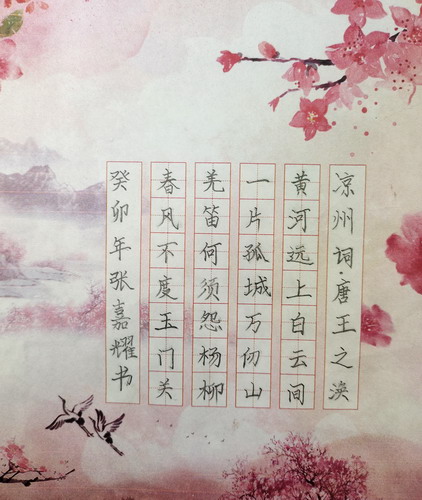 凉州词·唐王之涣
黄河远上白云间
一片孤城万仞山
羌笛何须怨杨柳
春风不度玉门关
癸卯年张嘉耀书